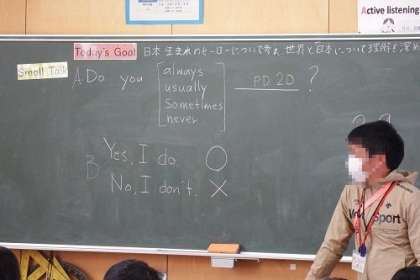 Active listening
Today's Goal 日本生まれのヒーローについて考え、世界と日本について理解を深め
Small Talk
A Do you always usually sometimes never P.D. 20 ?
B Yes, I do. ○
No, I don't. ×
Sport